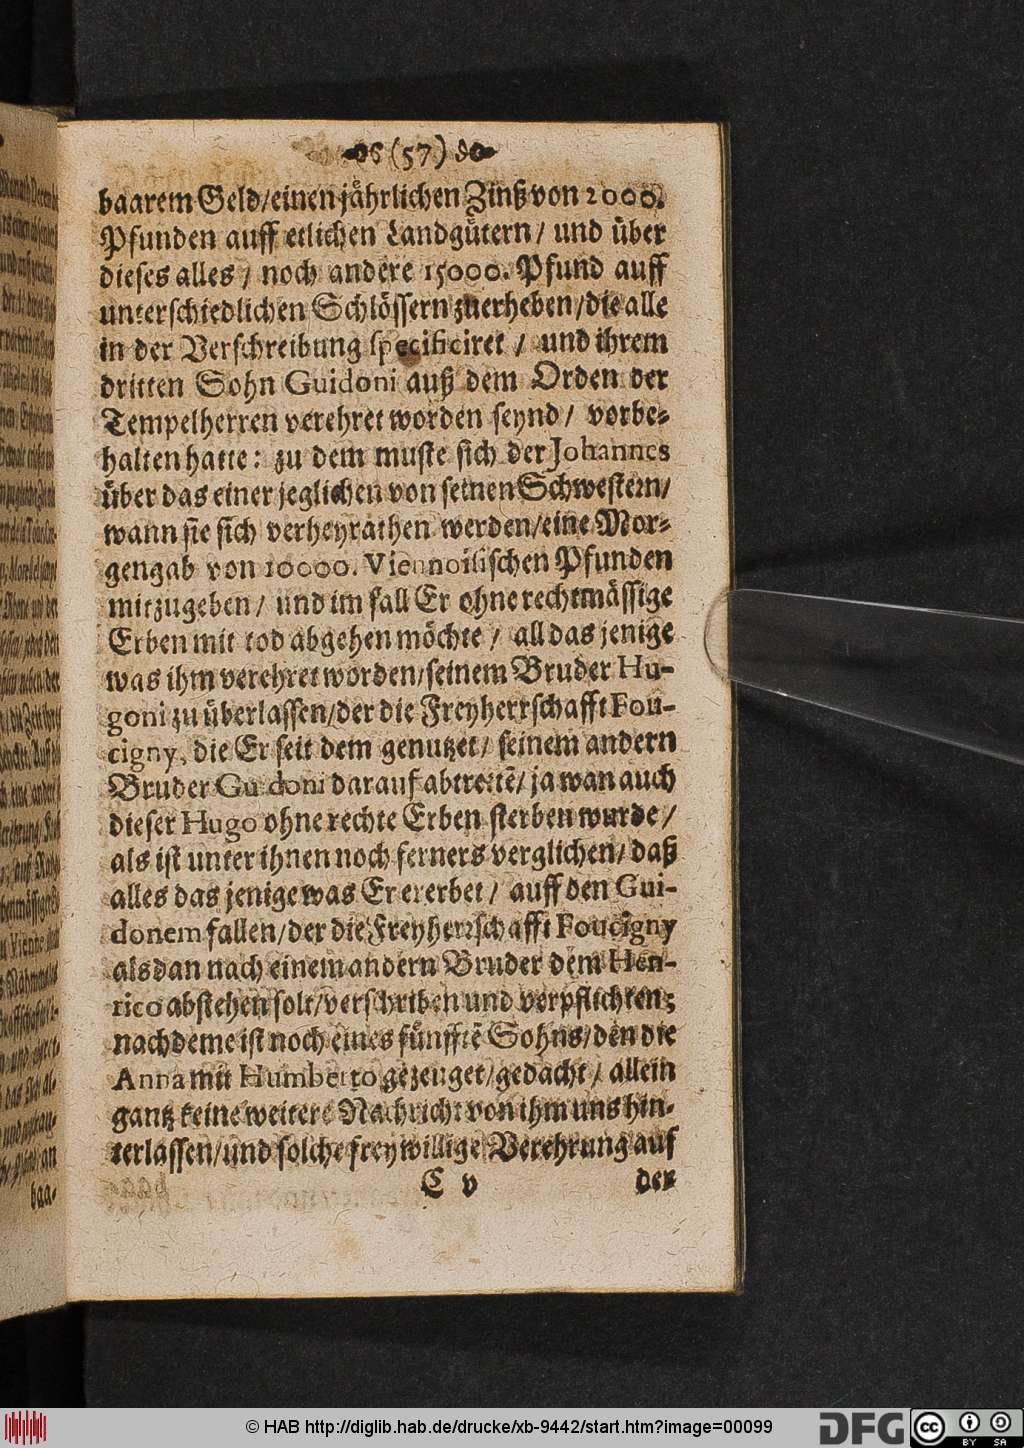 (57)
baarem Geld/einen jährlichen Zinß von 2000.
Pfunden auff etlichen Landgütern/ und über
dieses alles/ noch andere 15000. Pfund auff
unterschiedlichen Schlössern zuerheben/die alle
in der Verschreibung specificiret/ und ihrem
dritten Sohn Guidoni auß dem Orden der
Tempelherren verehret worden seynd/ vorbe-
halten hatte: zu dem muste sich der Johannes
über das einer jeglichen von seinen Schwestern/
wann sie sich verheyrathen werden/eine Mor-
gengab von 10000. Viennoisischen Pfunden
mitzugeben/ und im fall Er ohne rechtmässige
Erben mit tod abgehen möchte/ all das jenige
was ihm verehret worden/seinem Bruder Hu-
goni zu überlassen/der die Freyherrschafft Fou-
cigny, die Er seit dem genutzet/ seinem andern
Bruder Guidoni darauf abtrettē/ ja wan auch
dieser Hugo ohne rechte Erben sterben wurde/
als ist unter ihnen noch ferners verglichen/ daß
alles das jenige was Er ererbet/ auff den Gui-
donem fallen/der die Freyherrschafft Foucigny
als dan nach einem andern Bruder dem Hen-
rico abstehen solt/verschriben und verpflichten;
nachdeme ist noch eines fünfftē Sohns/den die
Anna mit Humberto gezeuget/gedacht/ allein
gantz keine weitere Nachricht von ihm uns hin-
terlassen/und solche freywillige Verehrung auf
C v der
baa-
© HAB http://diglib.hab.de/drucke/xb-9442/start.htm?image=00099
DFG
cc
BY SA